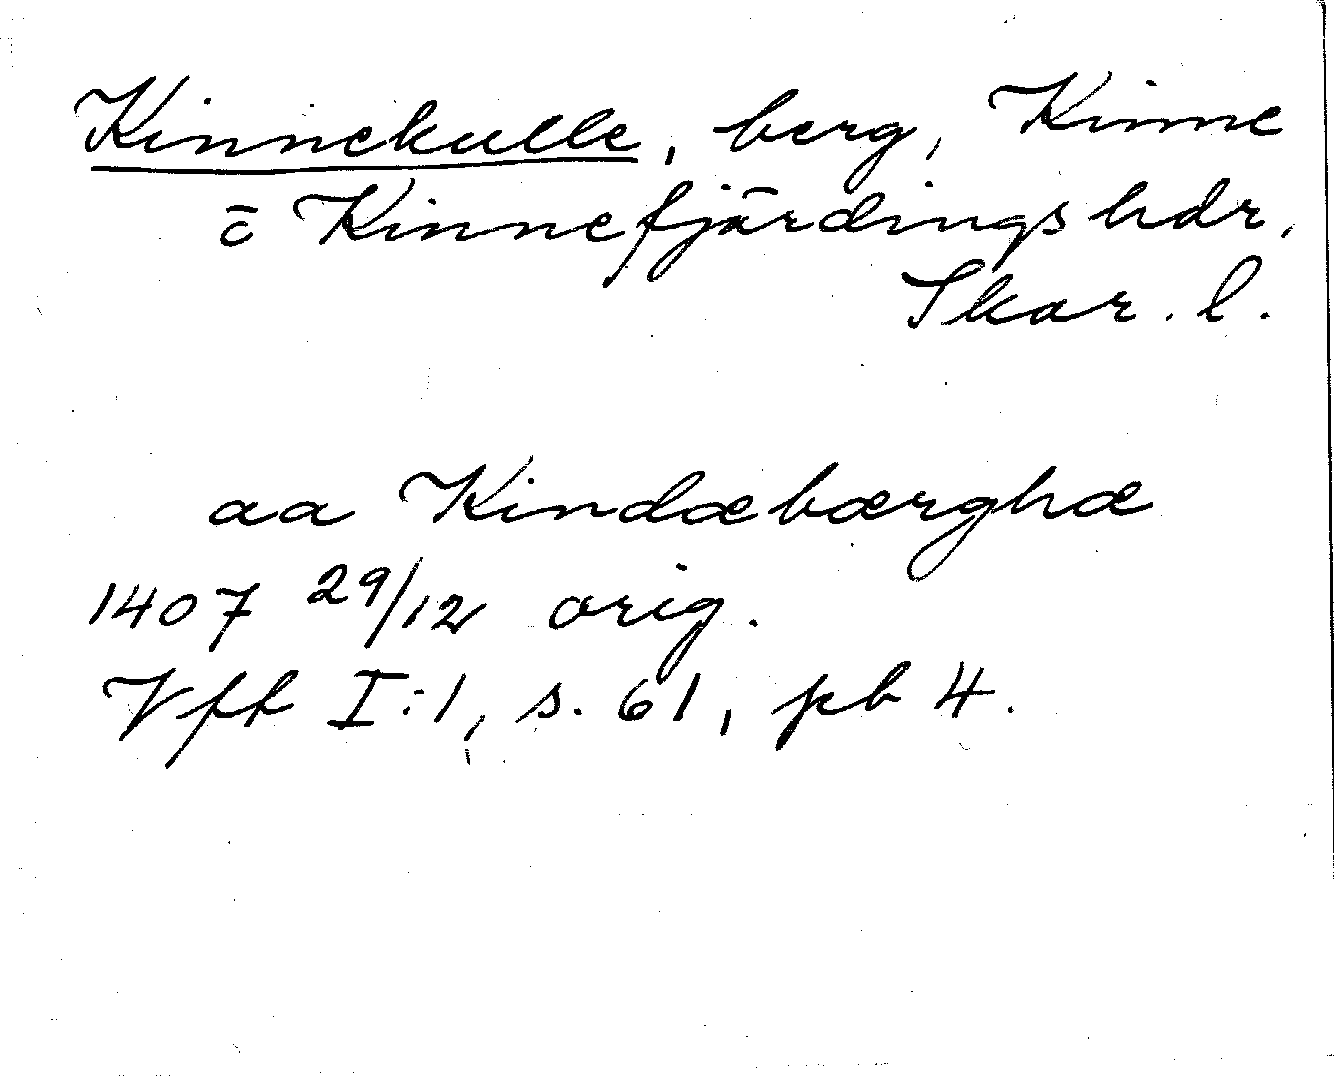 Kinnekulle, berg, Kinne
o Kinnefjärdings hdr,
Skar. l.
aa Kindæbærghæ
1407 29/12 orig.
Vfh I:1, s. 61, pb 4.